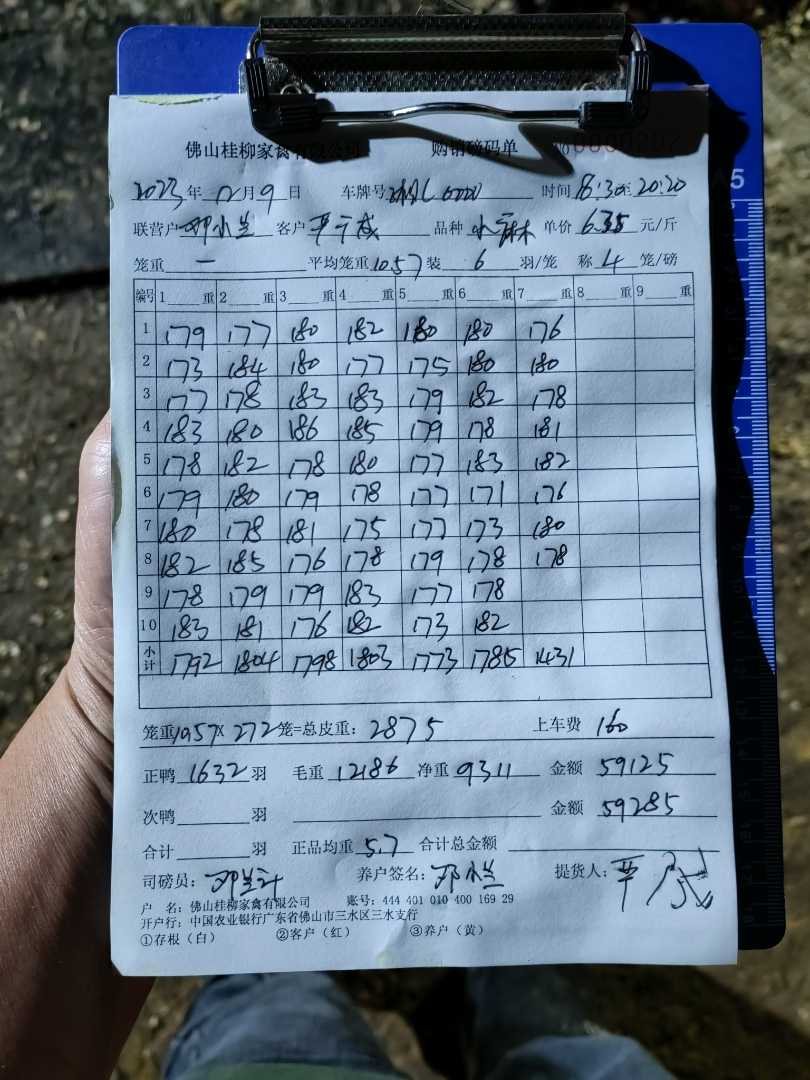 佛山桂柳家禽有限公司 购销磅码单 №
2023年12月9日 车牌号 时间 18:30至20:20
联营户 邓小兰 客户 单价 6.35 元/斤 品种 小麻木
笼重 一 平均笼重 10.57 装 6 羽/笼 称 4 笼/磅
编号 1 重 2 重 3 重 4 重 5 重 6 重 7 重 8 重 9 重
1 179 177 180 182 180 180 176
2 173 184 180 177 175 180 180
3 177 178 183 183 179 182 178
4 183 180 186 185 179 178 181
5 178 182 178 180 177 183 182
6 179 180 179 178 177 171 176
7 180 178 181 175 177 173 180
8 182 185 176 178 179 178 178
9 178 179 179 183 177 178
10 183 181 176 182 173 182
小计 1792 1804 1798 1803 1773 1785 1431
笼重 10.57 X 272 笼=总皮重: 2875 上车费 160
正鸭 1632 羽 毛重 12186 净重 9311 金额 59125
次鸭 羽 金额 59285
合计 羽 正品均重 5.7 合计总金额
司磅员: 养户签名: 邓小兰 提货人:
户 名: 佛山桂柳家禽有限公司 账号: 444 401 010 400 169 29
开户行: 中国农业银行广东省佛山市三水区三水支行
①存根（白） ②客户（红） ③养户（黄）
A5